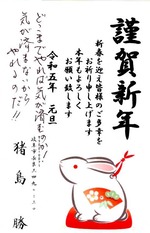 謹賀新年
新春を迎え皆様のご多幸を
お祈り申し上げます
本年もよろしく
お願い致します
令和五年　元旦
どこまでやれば気が済むのか!
気が済まないから
やれるのだ!!
猪島 勝